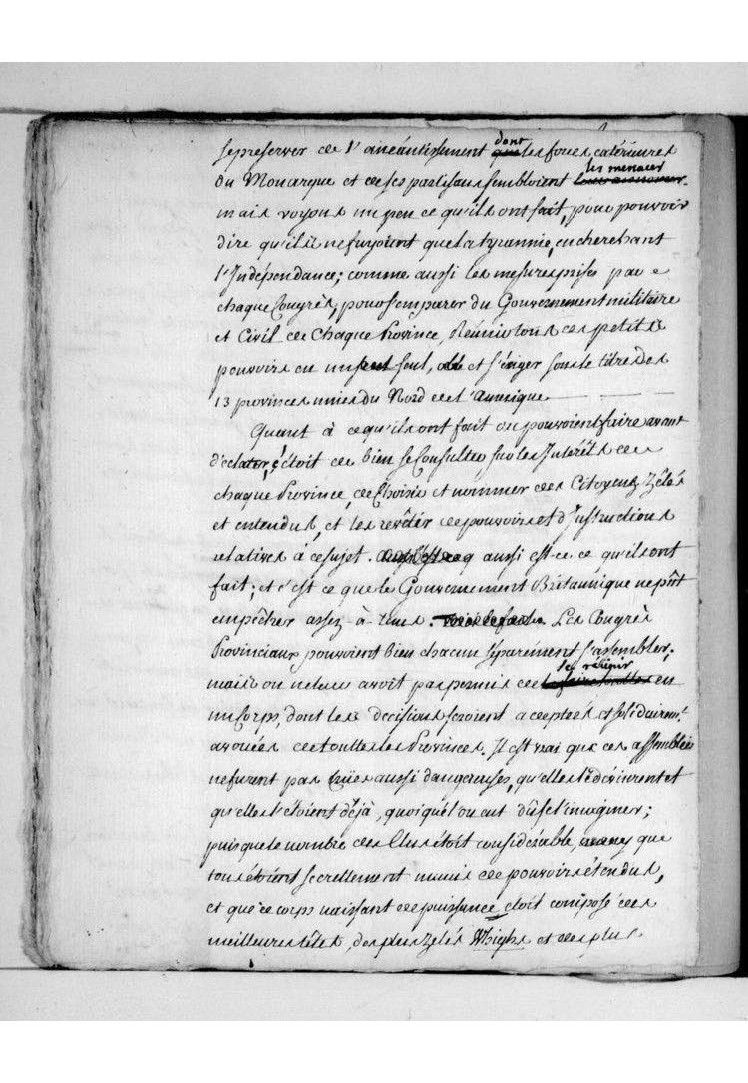 se preserver de l'anéantissement dont que les forces exterieures
du Monarque et de ses partisans sembloient les menacer
mais voyons un peu ce qu'ils ont fait, pour pouvoir
dire qu'ils ne fuyoient que la tyrannie, en cherchant
l'Indépendance; comme aussi les mesures prises par
chaque Congrès, pour s'emparer du Gouvernement militaire
et Civil de chaque Province, Réunir tous ces petits
pouvoirs en un seul, et s'ériger sous le titre des
13 provinces unies du Nord de l'Amerique
Quant à ce qu'ils ont fait ou pouvoient faire avant
d'éclater, c'étoit de bien se Consulter sur les Intérêts de
chaque Province, de Choisir et nommer des Citoyens Zélés
et entendus, et les revêtir de pouvoirs et d'Instructions
relatives à ce sujet. aussi est-ce ce qu'ils ont
fait; et c'est ce que le Gouvernement Britannique ne pût
empêcher assez-à-tems. Les Congrès
Provinciaux pouvoient bien chacun séparément s'assembler;
mais on ne leur avoit pas permis de se réunir en
un Corps, dont les decisions seroient acceptées et solidairemt.
avouées de toutes les Provinces. Il est vrai que ces assemblées
ne furent pas crües aussi dangereuses, qu'elles le devinrent et
qu'elles l'étoient déjà, quoiqu'on eut dû se l'imaginer;
puisque le nombre des Elus étoit considérable, que
tous étoient secrettement munis de pouvoirs étendus,
et que ce corps naissant de puissance étoit composé des
meilleures têtes, des plus zelés Whighs et des plus